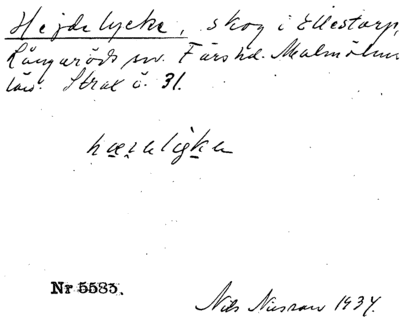 Hejdelycke, skog i Ellestorp,
Långaröds sn. Färs hd. Malmöhus
län. Strax ö. 31.
Nr 5583.
Nils Nilsson 1934.